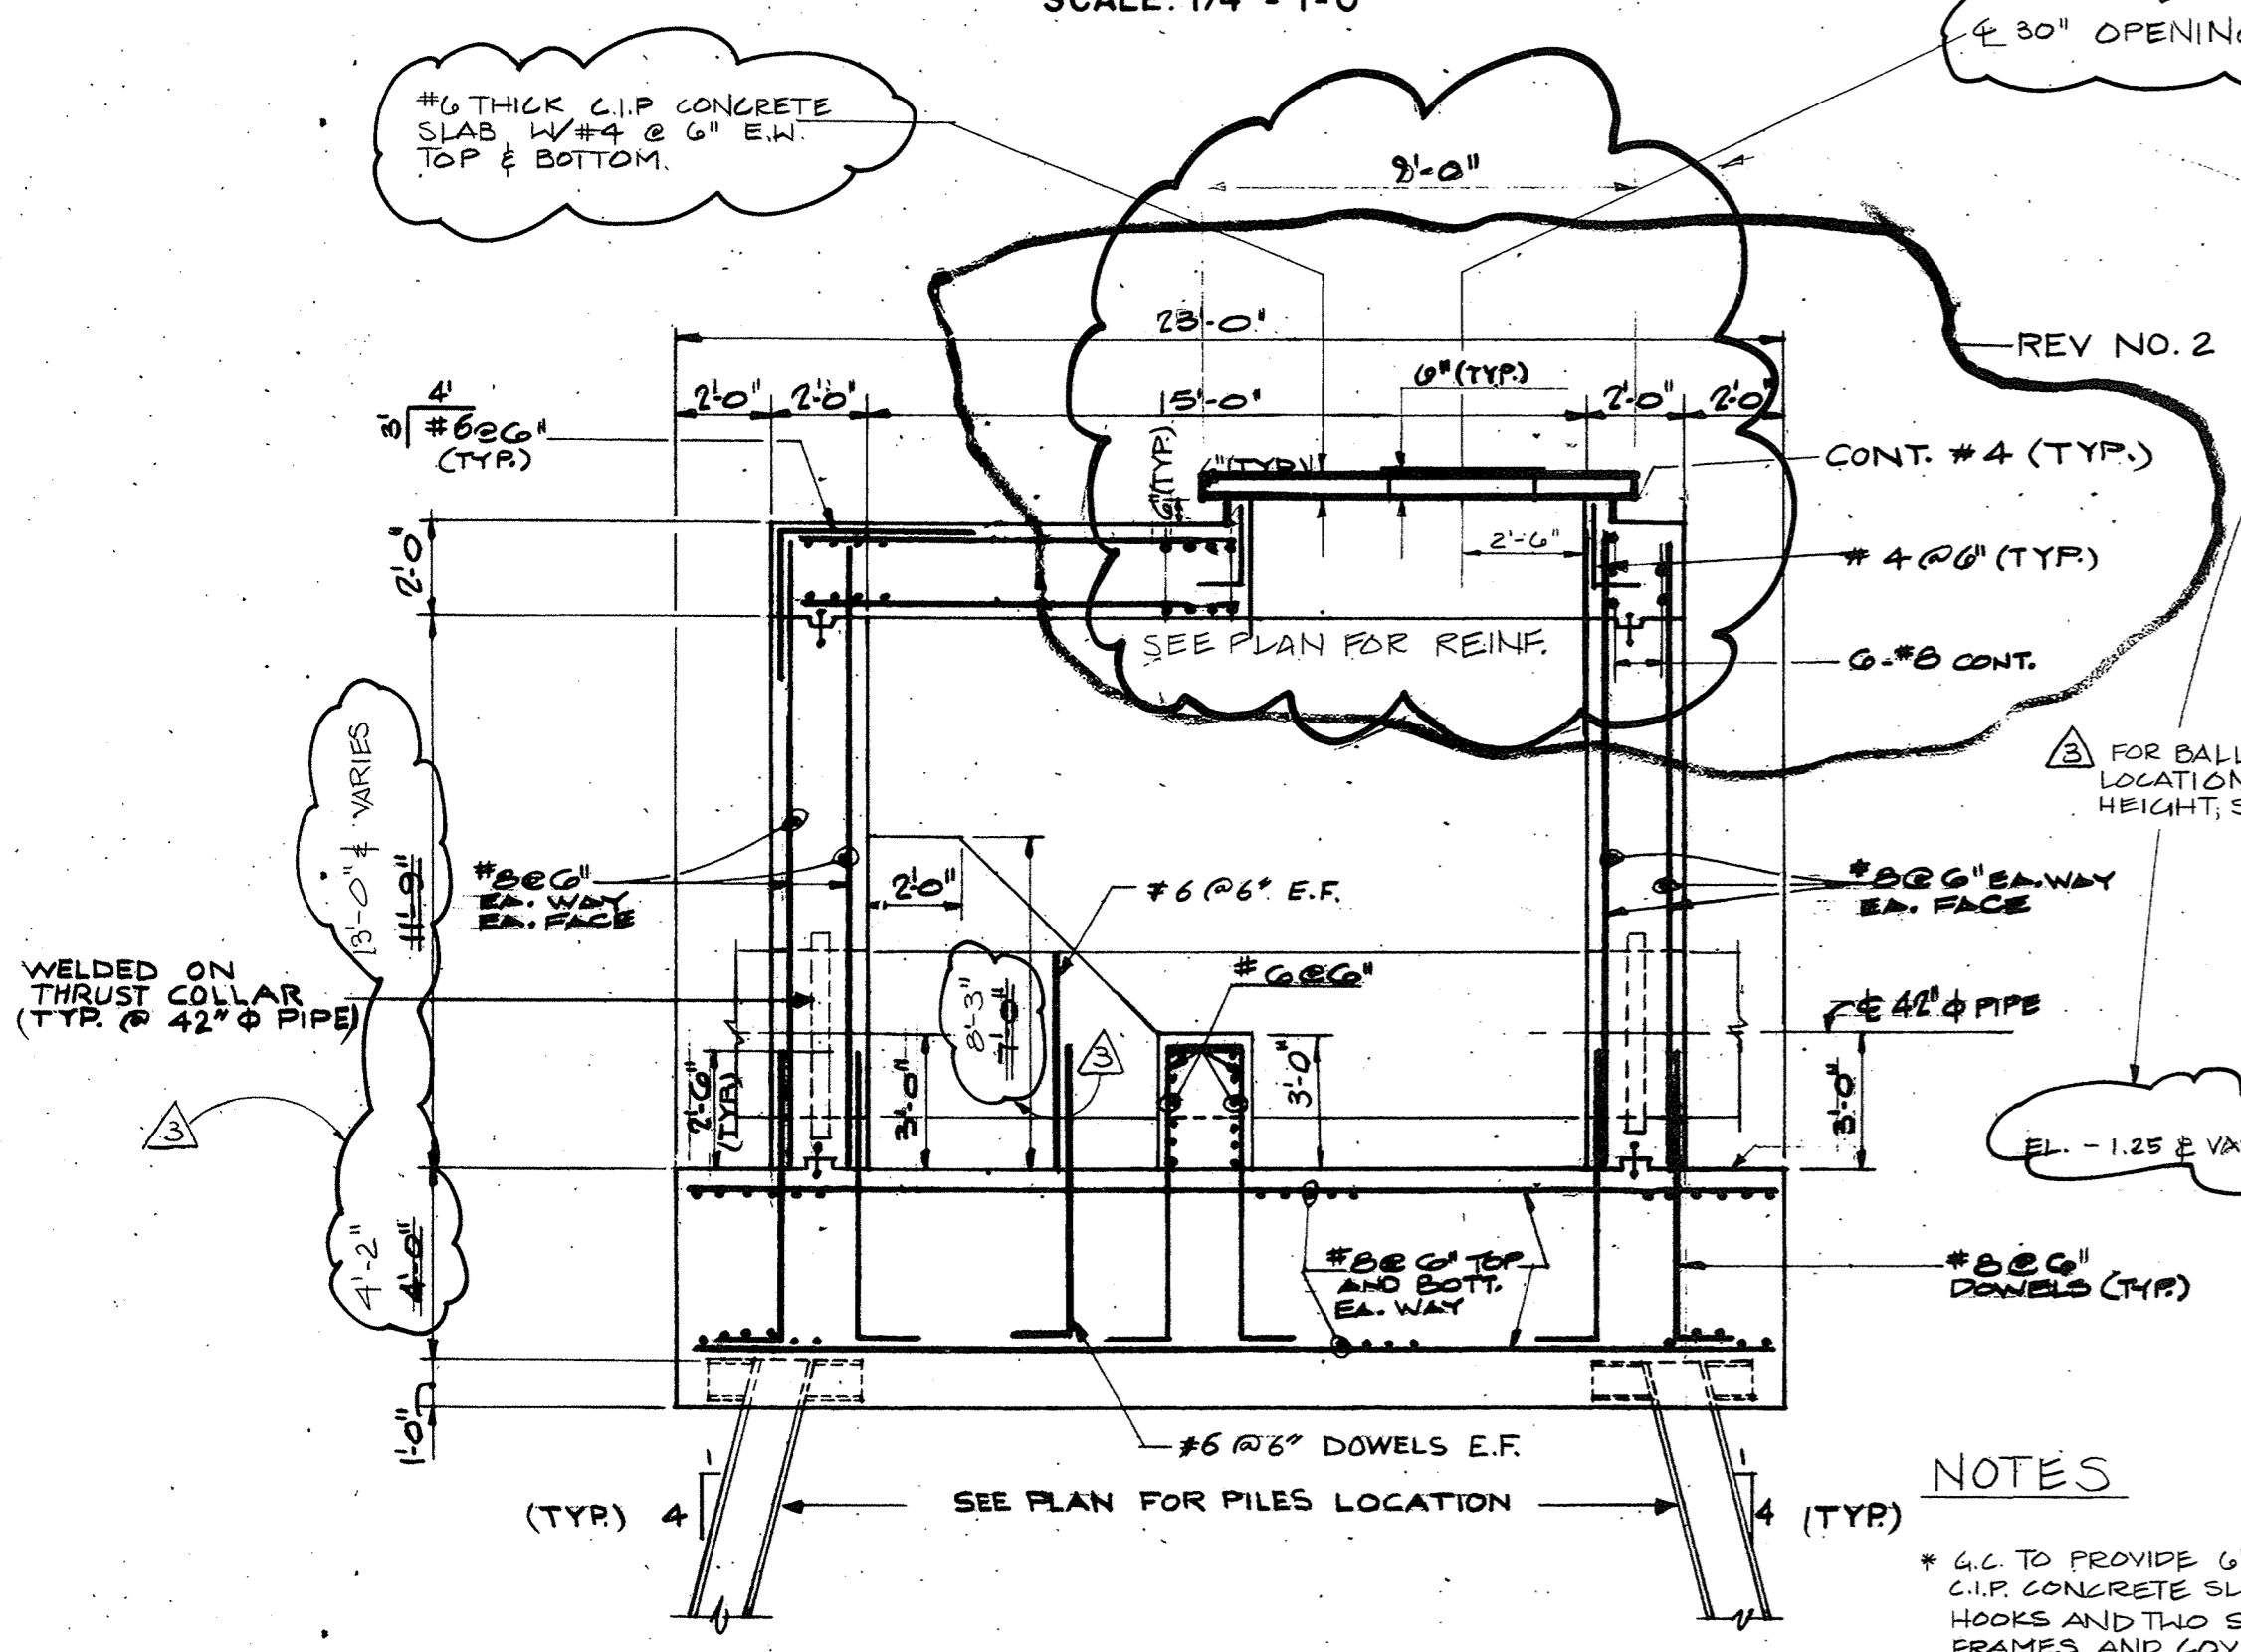 SCALE: 1/4" = 1'-0"
℄ 30" OPENING
#6 THICK C.I.P CONCRETE
SLAB W/#4 @ 6" E.W.
TOP & BOTTOM.
8'-0"
23'-0"
REV NO. 2
6" (TYP.)
2'-0" 2'-0" 15'-0" 2'-0" 2'-0"
4'
3' #6@6"
(TYP.)
6" (TYP.)
6" (TYP.)
CONT. #4 (TYP.)
2'-0"
2'-6"
# 4 @6" (TYP.)
SEE PLAN FOR REINF.
6-#8 CONT.
3 FOR BALL
LOCATION
HEIGHT, S
13'-0" ± VARIES
11'-9"
#8@6"
EA. WAY
EA. FACE
2'-0"
#6 @6" E.F.
#8@6" EA. WAY
EA. FACE
WELDED ON
THRUST COLLAR
(TYP. @ 42" Φ PIPE)
8'-3"
7'-0"
#6@6"
℄ 42" Φ PIPE
3
2'-6"
(TYP.)
3'-0"
3
3'-0"
3'-0"
EL. -1.25 & VA
4'-2"
4'-0"
#8@6" TOP
AND BOTT.
EA. WAY
#8@6"
DOWELS (TYP.)
1'-0"
#6 @6" DOWELS E.F.
(TYP.) 4 1
SEE PLAN FOR PILES LOCATION
1 4 (TYP.)
NOTES
* G.C. TO PROVIDE 6"
C.I.P. CONCRETE SL
HOOKS AND TWO S
FRAMES AND COV